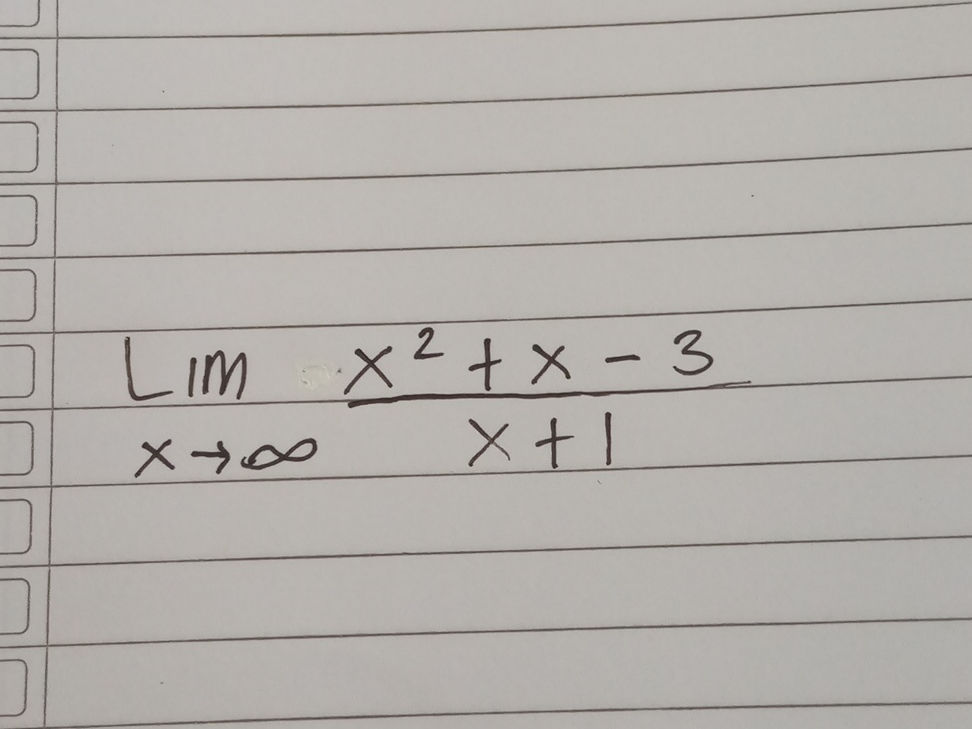 Lim x² + x - 3
x→∞ x + 1